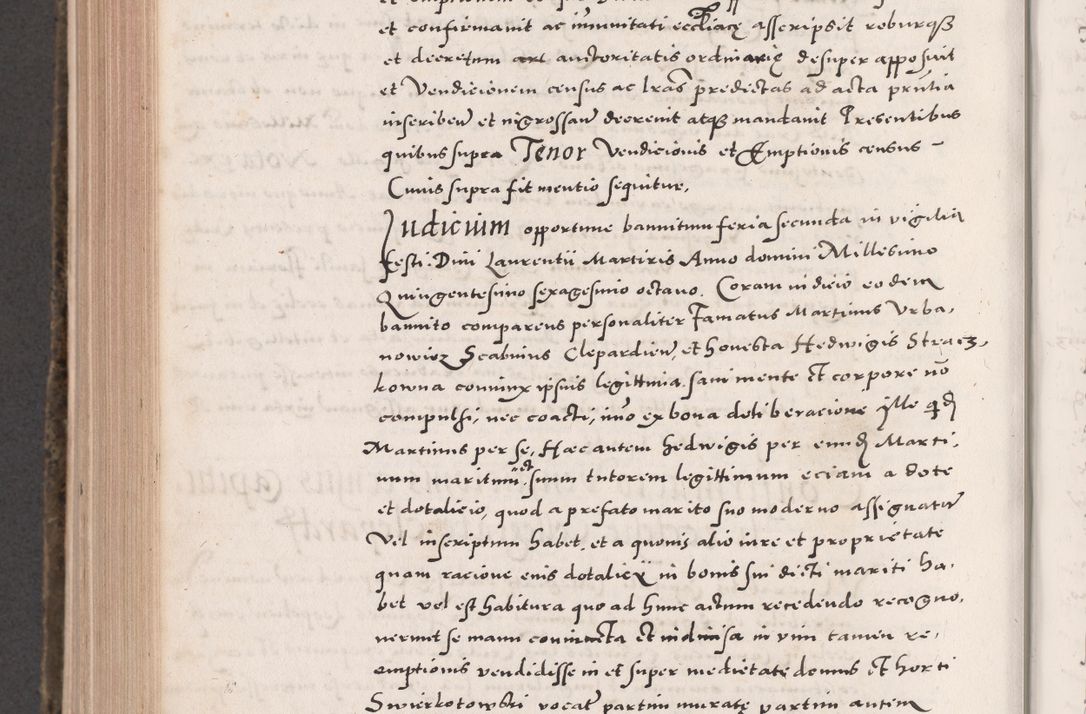 et confirmavit ac im̃unitati eccl̃iacę asscripsit roburqȝ
et decretum ac auctoritatis ordinarię desuper apposuit
et Vendicionem census ac lr̃as predictas ad acta pñtia
inscriben̄ et ingrossan̄ decrevit atqȝ mandavit Presentibus
quibus supra Tenor Vendicionis et Emptionis census
Cuius supra fit mentio sequitur,
Judicium opportune bannitum feria secunda in vigilia
festi Divi Laurentii Martiris Anno domini Millesimo
Quingentesimo sexagesimo octavo. Coram iudicio eodem
bannito comparens personaliter Famatus Martinus Urba,
nowicz Scabinus Clepardien̄, et honesta Hedwigis Stracz,
kowna coniunx ipsius legittima. sani mente et corpore nō
compulsi, nec coacti, imo ex bona deliberacione ille qd
Martinus per se, Hæc autem hedwigis per eund Marti,
num maritum ut suum tutorem legittimum eciam a dote
et dotalicio, quod a prefato marito suo moderno assignatum̄
Vel inscriptum habet, et a quovis alio iure et proprietate
quam racione eius dotalicii in bonis sui dicti mariti ha,
bet vel est habitura quo ad hunc actum recedendo recogno,
verunt se manu coniuncta et indivisa in vim tamen re,
emptionis vendidisse in et super medietate domus et horti
Swierkotowski vocat̄ partim muratę partim autem